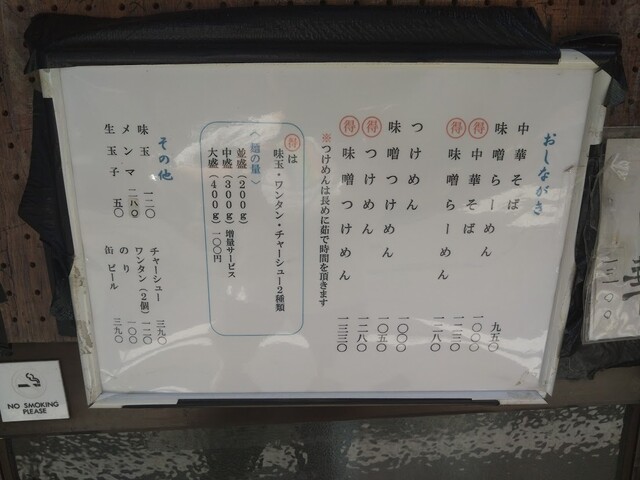 おしながき
中華そば 九五〇
味噌らーめん 一〇〇〇
得 中華そば 一二三〇
得 味噌らーめん 一二八〇
つけめん 一〇〇〇
味噌つけめん 一〇五〇
得 つけめん 一二八〇
得 味噌つけめん 一三三〇
※つけめんは長めに茹で時間を頂きます
得は
味玉・ワンタン・チャーシュー2種類
〈麺の量〉
並盛(200g)
中盛(300g)増量サービス
大盛(400g)一〇〇円
その他
味玉 一二〇
メンマ 二八〇
生玉子 五〇
チャーシュー 三九〇
ワンタン(2個) 一二〇
のり 一〇〇
缶ビール 三九〇
NO SMOKING
PLEASE